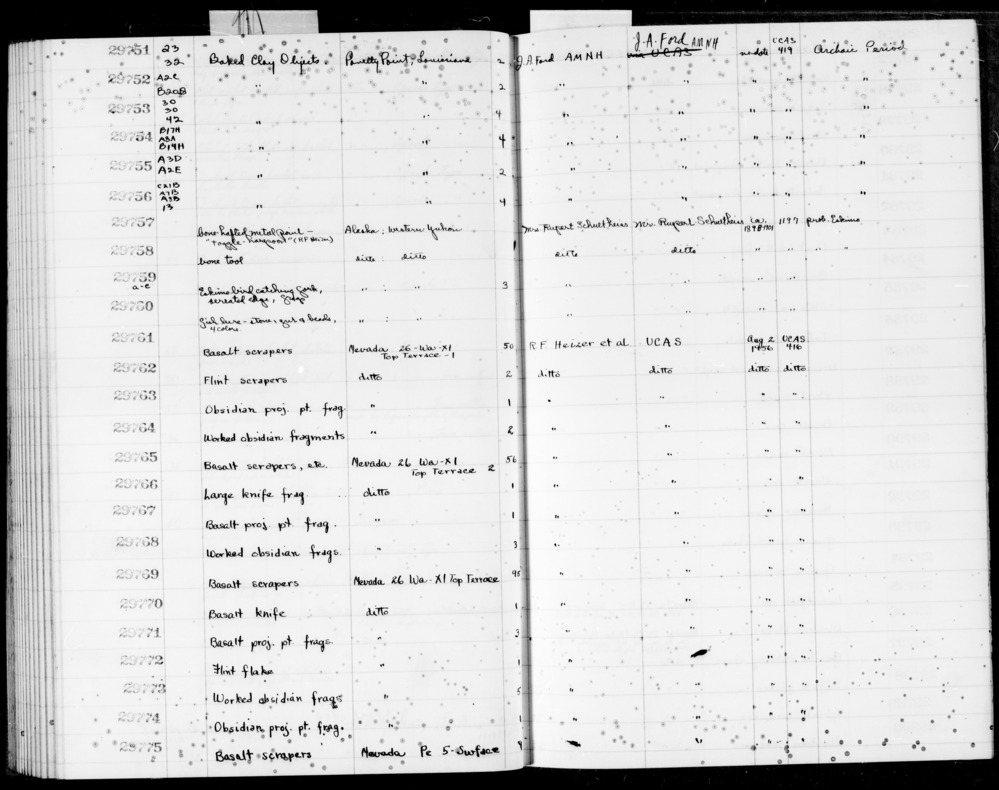 J.A. Ford AMNH
29751 23 Baked Clay Objects. Poverty Point, Louisiana 2 J.A. Ford AMNH UCAS no date UCAS 419 Archaic Period
32
29752 A2C " " 2 " " " " "
B20B
29753 30 " " 4 " " " " "
30
42
29754 B17H " " 4 " " " " "
A3A
B14H
29755 A3D " " 2 " " " " "
A2E
29756 C21B " " 4 " " " " "
A7B
A3B
13
29757 bone-hafted metal point - Alaska : western Yukon Mrs Rupert Schultheis Mr. Rupert Schultheis ca. 1898-1901 1197 prob. Eskimo
"toggle-harpoon" (RF Heizer)
29758 bone tool ditto : ditto 1 ditto ditto " " " "
29759 a-c Eskimo bird catching gorks, " : " 3 " " " "
serrated edge, frags
29760 fish lure - stone, gut & beads, " : " " " " "
4 colors
29761 Basalt scrapers Nevada 26-Wa-X1 50 R.F. Heizer et al UCAS Aug 2 1956 UCAS 416
Top Terrace - 1
29762 Flint scrapers ditto 2 ditto ditto ditto ditto
29763 Obsidian proj. pt. frag " 1 " " " "
29764 Worked obsidian fragments " 2 " " " "
29765 Basalt scrapers, etc. Nevada 26 Wa-X1 56 " " " "
Top Terrace 2
29766 Large knife frag. ditto 1 " " " "
29767 Basalt proj. pt. frag. " 1 " " " "
29768 Worked obsidian frags. " 3 " " " "
29769 Basalt scrapers Nevada 26 Wa-X1 Top Terrace 95 " " " "
29770 Basalt knife ditto 1 " " " "
29771 Basalt proj. pt. frags. " 3 " " " "
29772 Flint flake " 1 " " "
29773 Worked obsidian frags " 5 " " " "
29774 Obsidian proj. pt. frag. " 1 " " " "
29775 Basalt scrapers Nevada Pe 5-Surface 4 " " "